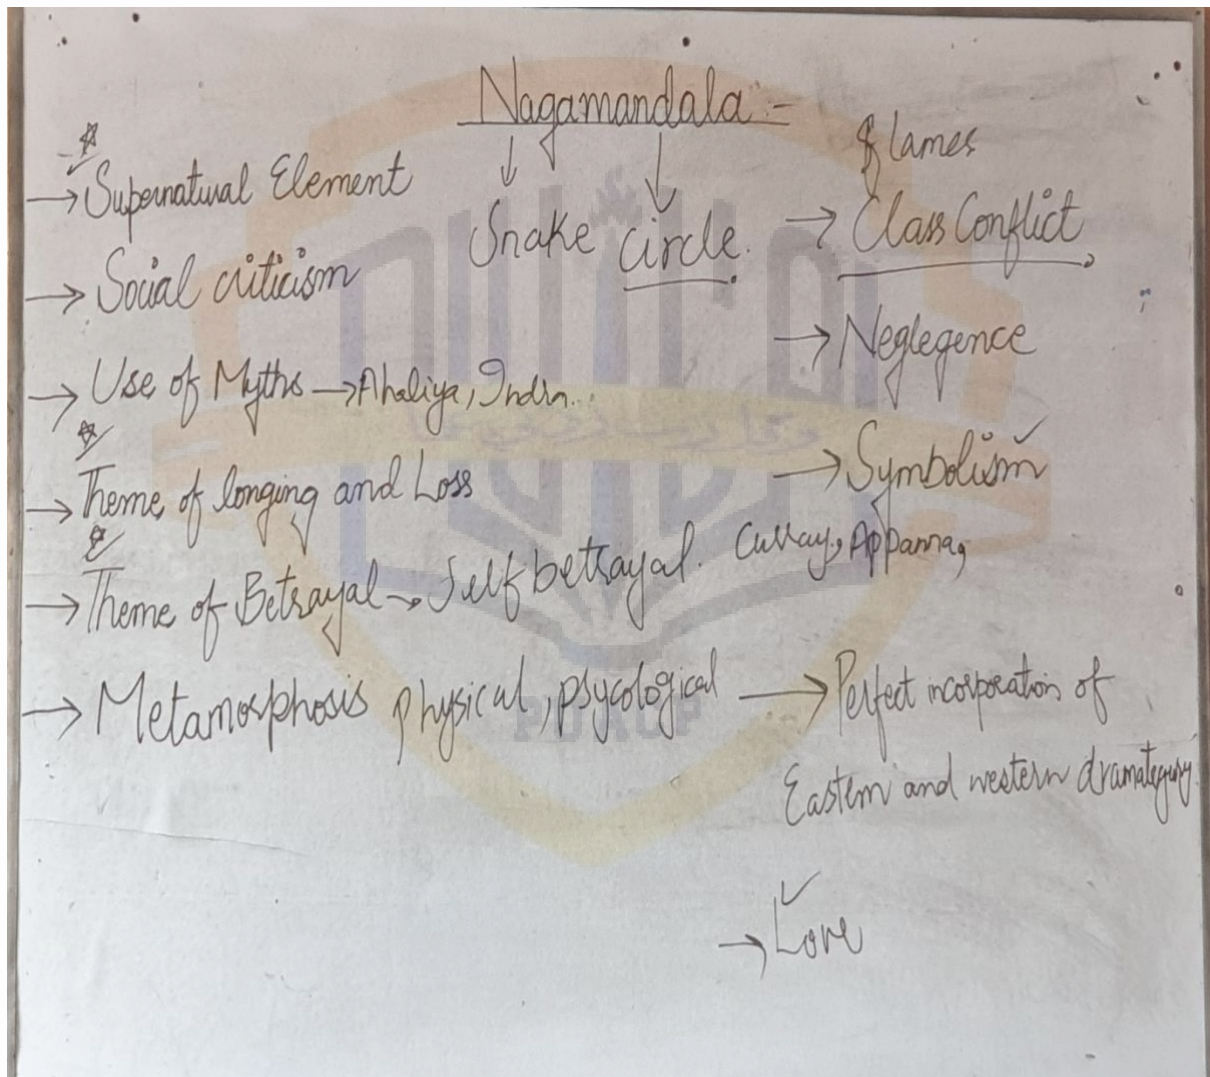 Nagamandala :-
Snake circle.
→ Supernatural Element
→ Social criticism
→ Use of Myths → Ahaliya, Indra...
→ Theme of longing and Loss
→ Theme of Betrayal → Self betrayal.
→ Metamorphosis physical, psycological
flames
→ Class Conflict
→ Neglegence
→ Symbolism
Curray, Appanna,
→ Perfect incorporation of
Eastern and western dramategury
→ Love